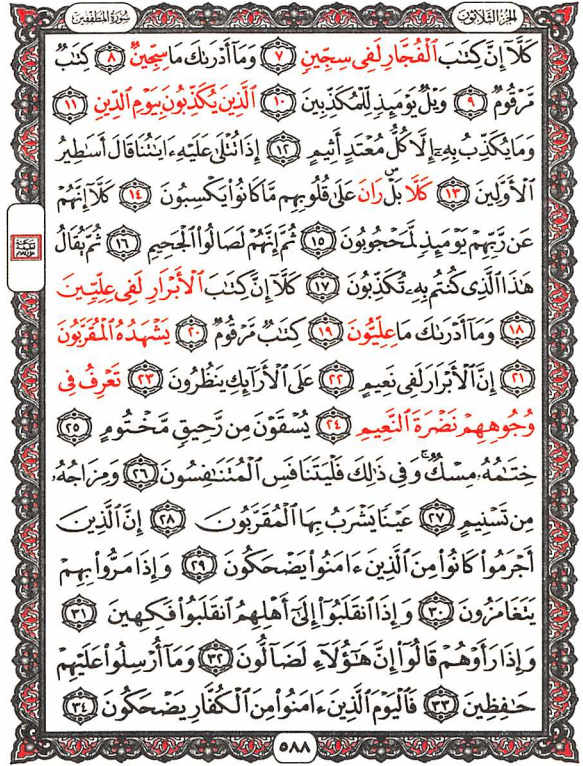 الجزء الثلاثون
سورة المطففين
كَلَّآ إِنَّ كِتَٰبَ ٱلْفُجَّارِ لَفِى سِجِّينٍ ٧ وَمَآ أَدْرَىٰكَ مَا سِجِّينٌ ٨ كِتَٰبٌ
مَّرْقُومٌ ٩ وَيْلٌ يَوْمَئِذٍ لِّلْمُكَذِّبِينَ ١٠ ٱلَّذِينَ يُكَذِّبُونَ بِيَوْمِ ٱلدِّينِ ١١
وَمَا يُكَذِّبُ بِهِۦٓ إِلَّا كُلُّ مُعْتَدٍ أَثِيمٍ ١٢ إِذَا تُتْلَىٰ عَلَيْهِ ءَايَٰتُنَا قَالَ أَسَٰطِيرُ
ٱلْأَوَّلِينَ ١٣ كَلَّا بَلْ ۜ رَانَ عَلَىٰ قُلُوبِهِم مَّا كَانُوا۟ يَكْسِبُونَ ١٤ كَلَّآ إِنَّهُمْ
عَن رَّبِّهِمْ يَوْمَئِذٍ لَّمَحْجُوبُونَ ١٥ ثُمَّ إِنَّهُمْ لَصَالُوا۟ ٱلْجَحِيمِ ١٦ ثُمَّ يُقَالُ
هَٰذَا ٱلَّذِى كُنتُم بِهِۦ تُكَذِّبُونَ ١٧ كَلَّآ إِنَّ كِتَٰبَ ٱلْأَبْرَارِ لَفِى عِلِّيِّينَ
١٨ وَمَآ أَدْرَىٰكَ مَا عِلِّيُّونَ ١٩ كِتَٰبٌ مَّرْقُومٌ ٢٠ يَشْهَدُهُ ٱلْمُقَرَّبُونَ
٢١ إِنَّ ٱلْأَبْرَارَ لَفِى نَعِيمٍ ٢٢ عَلَى ٱلْأَرَآئِكِ يَنظُرُونَ ٢٣ تَعْرِفُ فِى
وُجُوهِهِمْ نَضْرَةَ ٱلنَّعِيمِ ٢٤ يُسْقَوْنَ مِن رَّحِيقٍ مَّخْتُومٍ ٢٥
خِتَٰمُهُۥ مِسْكٌ ۚ وَفِى ذَٰلِكَ فَلْيَتَنَافَسِ ٱلْمُتَنَٰفِسُونَ ٢٦ وَمِزَاجُهُۥ
مِن تَسْنِيمٍ ٢٧ عَيْنًا يَشْرَبُ بِهَا ٱلْمُقَرَّبُونَ ٢٨ إِنَّ ٱلَّذِينَ
أَجْرَمُوا۟ كَانُوا۟ مِنَ ٱلَّذِينَ ءَامَنُوا۟ يَضْحَكُونَ ٢٩ وَإِذَا مَرُّوا۟ بِهِمْ
يَتَغَامَزُونَ ٣٠ وَإِذَا ٱنقَلَبُوٓا۟ إِلَىٰٓ أَهْلِهِمُ ٱنقَلَبُوا۟ فَكِهِينَ ٣١
وَإِذَا رَأَوْهُمْ قَالُوٓا۟ إِنَّ هَٰٓؤُلَآءِ لَضَآلُّونَ ٣٢ وَمَآ أُرْسِلُوا۟ عَلَيْهِمْ
حَٰفِظِينَ ٣٣ فَٱلْيَوْمَ ٱلَّذِينَ ءَامَنُوا۟ مِنَ ٱلْكُفَّارِ يَضْحَكُونَ ٣٤
سكتة
لطيفة
٥٨٨